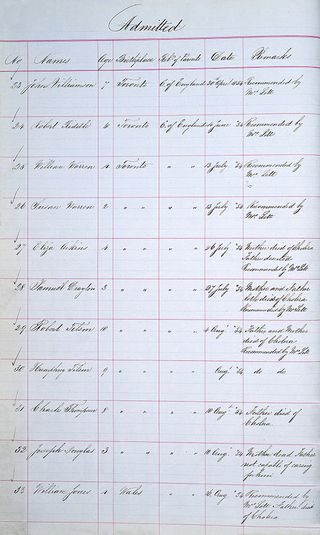 Admitted
No Names Age Birthplace Rel.n of Parents Date Remarks
23 John Williamson 7 Toronto C. of England 30 April 1854 Recommended by
Mr. Lett
24 Robert 4 Toronto C. of England June '54 Recommended by
Mr. Lett
25 William Warren 4 Toronto " " 13 July '54 Recommended by
Mr. Lett
26 Warren 2 " " " 13 July '54 Recommended by
Mr. Lett
27 Eliza 4 " " " 26 July '54 Mother died of Cholera
Father
Recommended by Mr Lett
28 Samuel Drayton 3 " " " 27 July '54 Mother and Father
both died of Cholera
Recommended by Mr Lett
29 Robert Tilson 10 " " " 4 Aug '54 Father and Mother
died of Cholera
Recommended by Mr Lett
30 Humphrey Tilson 9 " " Aug '54 do do
31 Charles Thompson 8 " " " 10 Aug '54 Father died of
Cholera
32 Joseph Douglas 3 " " " 10 Aug '54 Mother dead Father
not capable of caring
for him
33 William Jones 4 Wales " " 16 Aug '54 Recommended by
Mr Lett Father died
of Cholera